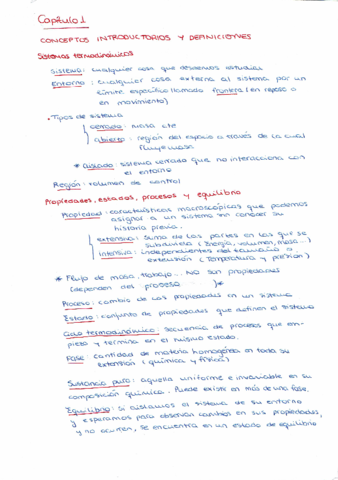 Capítulo 1
CONCEPTOS INTRODUCTORIOS Y DEFINICIONES
Sistemas termodinámicos
Sistema: cualquier cosa que deseamos estudiar
Entorno: cualquier cosa externa al sistema por un
límite específico llamado frontera (en reposo o
en movimiento)
• Tipos de sistema
cerrado: masa cte
abierto: región del espacio a través de la cual
fluye masa
* aislado: sistema cerrado que no interacciona con
el entorno
Región: volumen de control
Propiedades, estados, procesos y equilibrio
Propiedad: características macroscópicas que podemos
asignar a un sistema sin conocer su
historia previa.
extensiva: suma de las partes en las que se
subdivide (Energía, volumen, masa...)
intensiva: independientes del tamaño o
extensión (Temperatura y presión)
* Flujo de masa, trabajo... NO son propiedades
(dependen del proceso)*
Proceso: cambio de las propiedades en un sistema
Estado: conjunto de propiedades que definen el sistema
Ciclo termodinámico: secuencia de procesos que em-
pieza y termina en el mismo estado.
Fase: cantidad de materia homogénea en toda su
extensión (química y física)
Sustancia pura: aquella uniforme e invariable en su
composición química. Puede existir en más de una fase.
Equilibrio: si aislamos el sistema de su entorno
y esperamos para observar cambios en sus propiedades,
y no ocurren, se encuentra en un estado de equilibrio